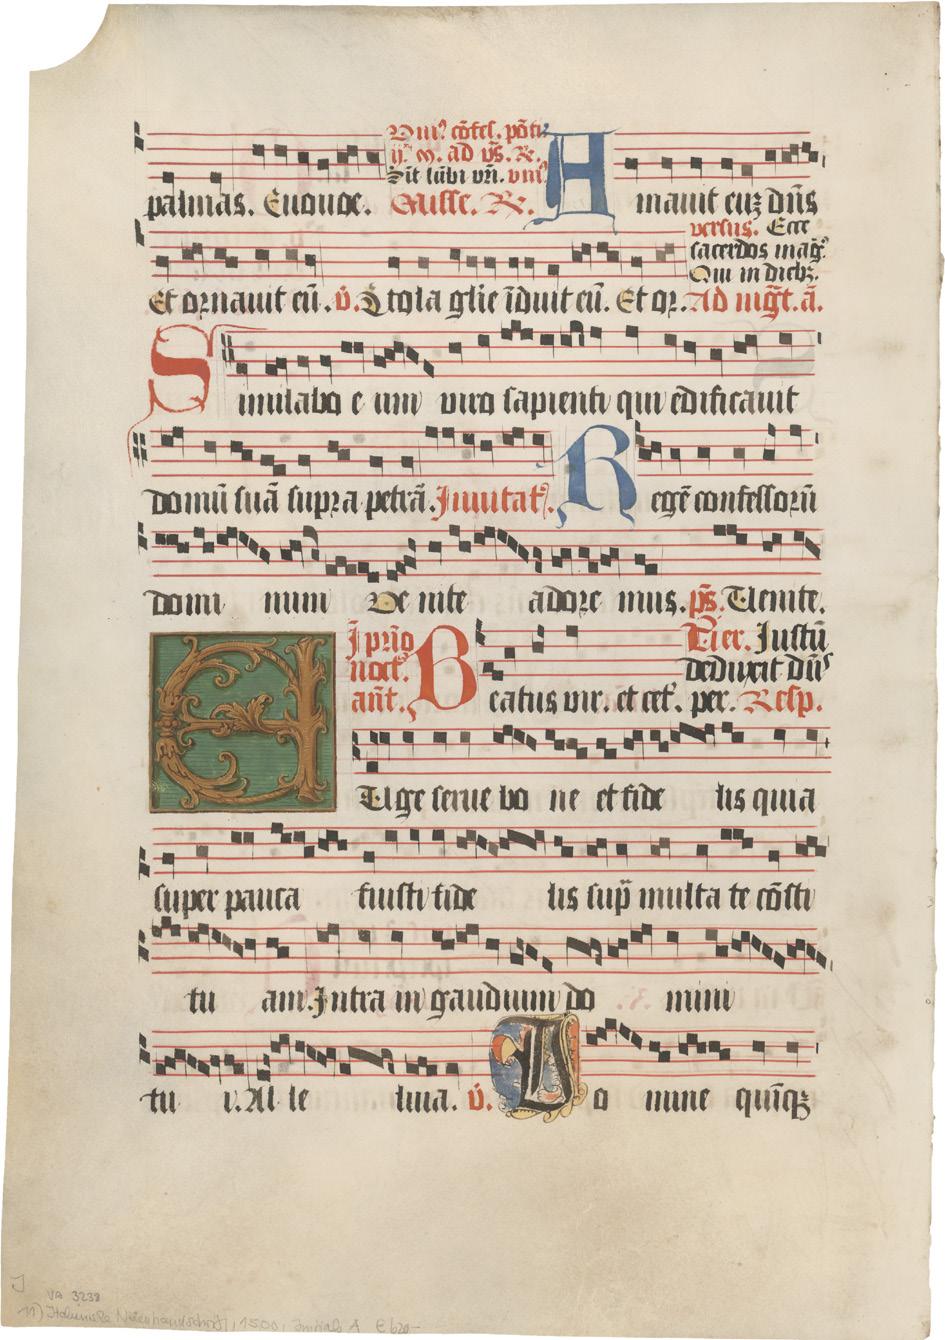 palmas. Euouae. Misse. R. A mauit eum dns
versus. Ecce
sacerdos magꝰ
Qui in diebꝫ.
Et ornauit eū. v̄. Stola glīe īduit eū. Et or. Ad mgt. ā.
S imilabo e um viro sapienti qui edificauit
domū suā supra petrā. Inuitat. R egē confessorū
domi num Ve nite adore mus. ps. Uenite.
I prīo
noct.
ant. B eatus vir. et cet. per. Resp.
Ver. Iustū
deduxit dūs
E Uge serue bo ne et fide lis quia
super pauca fuisti fide lis sup̄ multa te cōsti
tu am. Intra in gaudium do mini
tu i. Al le luia. v̄. D o mine quīqꝫ
VA 3238
11) Italienische Notenhandschrift, 1500, Initiale A € 620-